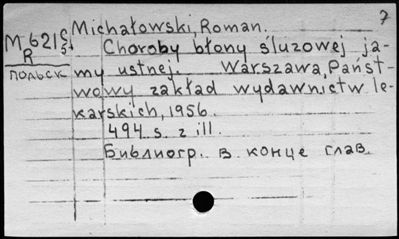 7
Michałowski, Roman.
M-621 c/5
R
польск
Choroby błony śluzowej ja-
my ustnej. Warszawa, Państ-
wowy zakład wydawnictw le-
karskich, 1956.
494 s. z ill.
Библиогр. в конце глав.